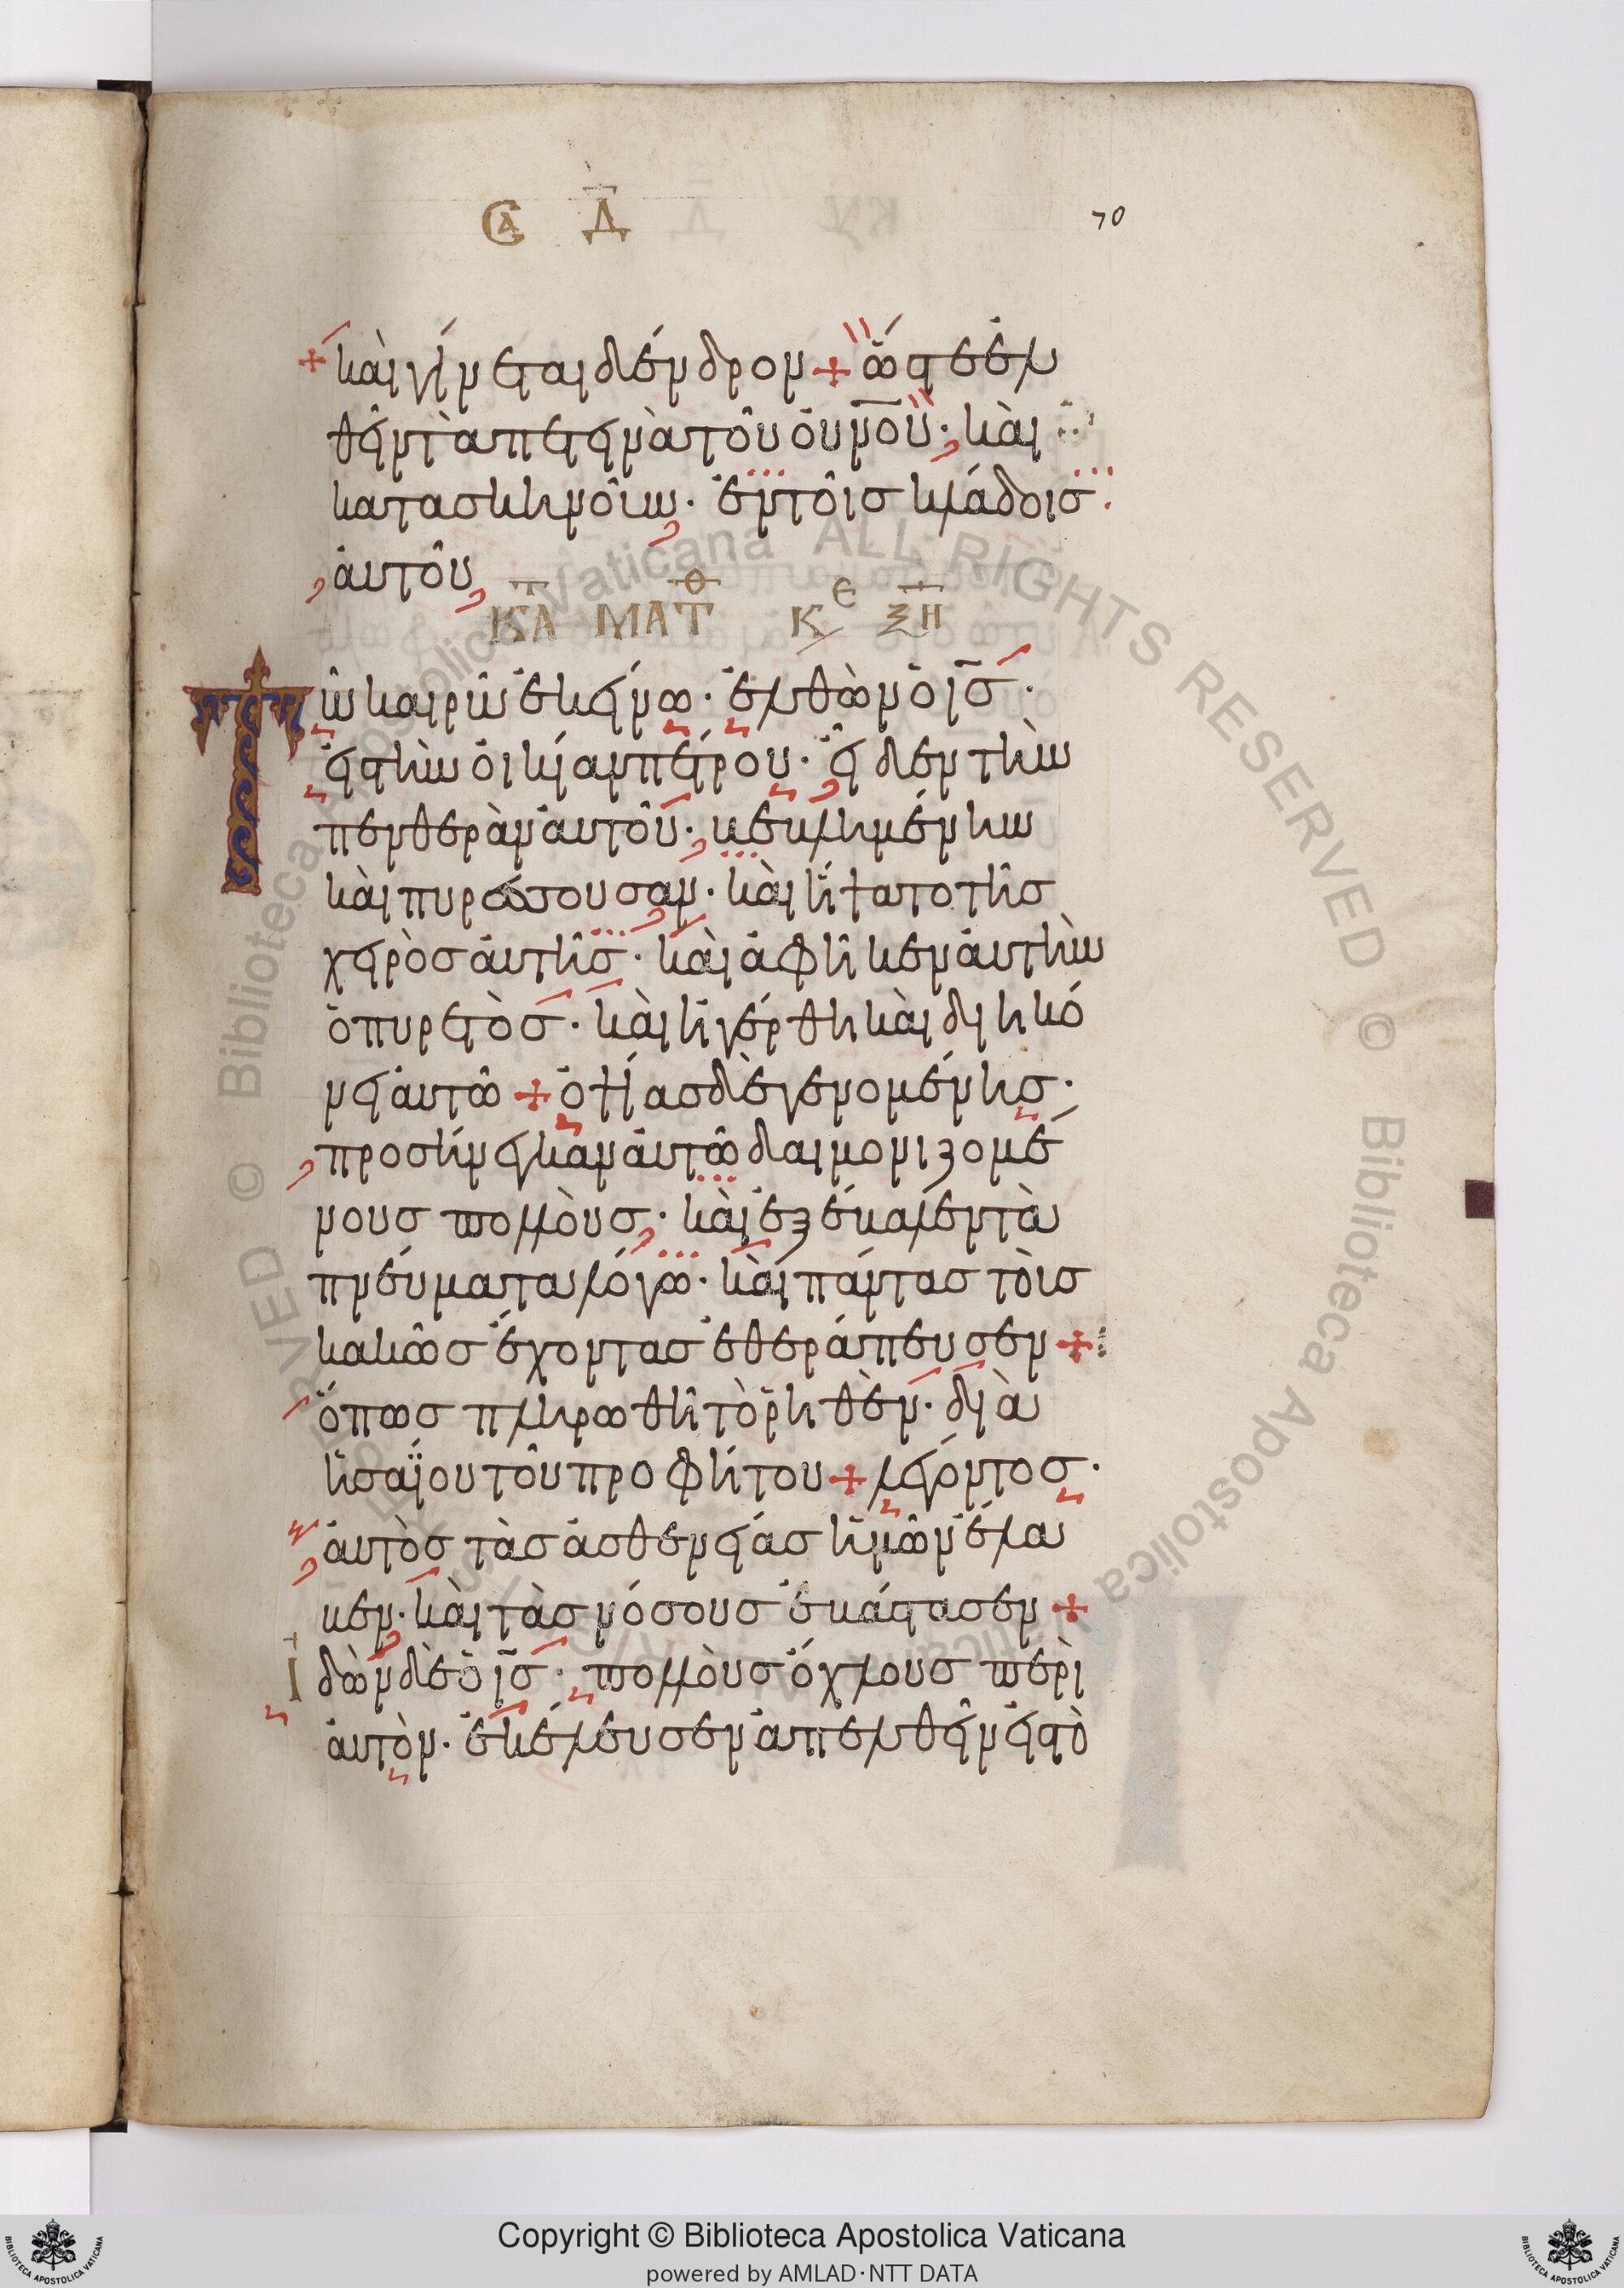 ϹΑ Δ̅
70
+ καὶ γίνεται δένδρον + ὥστε ἐλ
θεῖν τὰ πετεινὰ τοῦ οὐνοῦ· καὶ
κατασκηνοῖν· ἐν τοῖς κλάδοις
αὐτοῦ
ΚΑ ΜΑΤΘ ΚΕ ΞΗ
Τῶ καιρῶ ἐκείνω· ἐλθὼν ὁ ις·
εἰς τὴν οἰκίαν πέτρου· εἶδεν τὴν
πενθερὰν αὐτοῦ· κεκλημένην
καὶ πυρέσσουσαν· καὶ ἥψατο τῆς
χειρὸς αὐτῆς· καὶ ἀφῆκεν αὐτὴν
ὁ πυρετὸς· καὶ ἠγέρθη καὶ διηκό
νει αὐτῶ + ὀψίας δὲ γενομένης·
προσήνεγκαν αὐτῶ δαιμονιζομέ
νους πολλοὺς· καὶ ἐξέβαλεν τὰ
πνεύματα λόγω· καὶ πάντας τοὺς
κακῶς ἔχοντας ἐθεράπευσεν +
ὅπως πληρωθῆ τὸ ῥηθὲν· διὰ
ἠσαΐου τοῦ προφήτου + λέγοντος·
αὐτὸς τὰς ἀσθενείας ἡμῶν ἔλα
βεν· καὶ τὰς νόσους ἐβάστασεν +
Ἰδὼν δὲ ὁ ις· πολλοὺς ὄχλους περὶ
αὐτὸν· ἐκέλευσεν ἀπελθεῖν εἰς τὸ
Copyright © Biblioteca Apostolica Vaticana
powered by AMLAD·NTT DATA